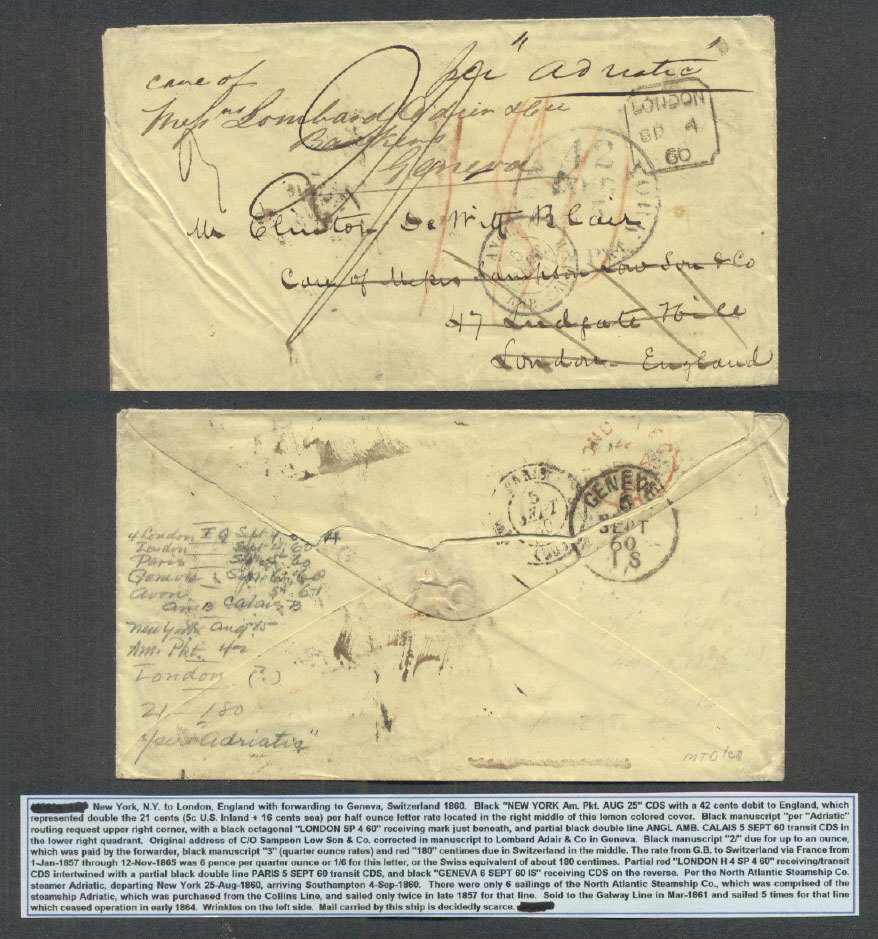 per "Adriatic"
care of
Messrs Lombard Odier & Cie
Bankers
Geneva
LONDON
SP 4
60
42
YORK
Pkt.
Mr Clinton De Witt Blair
Care of Messrs Sampson Low Son & Co
47 Ludgate Hill
London - England
PARIS
5
SEPT
60
GENEVE
6
SEPT
60
1 S
London Sept 4, 60
Paris Sept 5 60
Geneva Sept 6, 60
Amb Calais B
New York Aug 25
Am. Pkt. 42
London (?)
21 - 180
"per Adriatic"
New York, N.Y. to London, England with forwarding to Geneva, Switzerland 1860. Black "NEW YORK Am. Pkt. AUG 25" CDS with a 42 cents debit to England, which
represented double the 21 cents (5c U.S. Inland + 16 cents sea) per half ounce letter rate located in the right middle of this lemon colored cover. Black manuscript "per "Adriatic"
routing request upper right corner, with a black octagonal "LONDON SP 4 60" receiving mark just beneath, and partial black double line ANGL AMB. CALAIS 5 SEPT 60 transit CDS in
the lower right quadrant. Original address of C/O Sampson Low Son & Co. corrected in manuscript to Lombard Adair & Co in Geneva. Black manuscript "2/" due for up to an ounce,
which was paid by the forwarder, black manuscript "3" (quarter ounce rates) and red "180" centimes due in Switzerland in the middle. The rate from G.B. to Switzerland via France from
1-Jan-1857 through 12-Nov-1865 was 6 pence per quarter ounce or 1/6 for this letter, or the Swiss equivalent of about 180 centimes. Partial red "LONDON H 4 SP 4 60" receiving/transit
CDS intertwined with a partial black double line PARIS 5 SEPT 60 transit CDS, and black "GENEVA 6 SEPT 60 IS" receiving CDS on the reverse. Per the North Atlantic Steamship Co.
steamer Adriatic, departing New York 25-Aug-1860, arriving Southampton 4-Sep-1860. There were only 6 sailings of the North Atlantic Steamship Co., which was comprised of the
steamship Adriatic, which was purchased from the Collins Line, and sailed only twice in late 1857 for that line. Sold to the Galway Line in Mar-1861 and sailed 5 times for that line
which ceased operation in early 1864. Wrinkles on the left side. Mail carried by this ship is decidedly scarce.